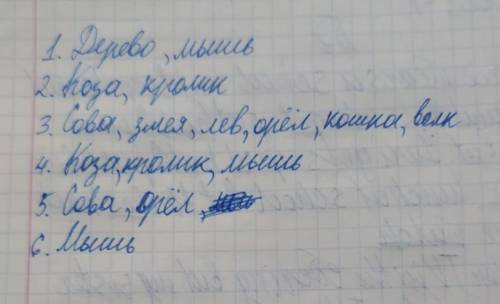 1. Дерево, мышь
2. Коза, кролик
3. Сова, змея, лев, орёл, кошка, волк
4. Коза, кролик, мышь
5. Сова, орёл,
6. Мышь